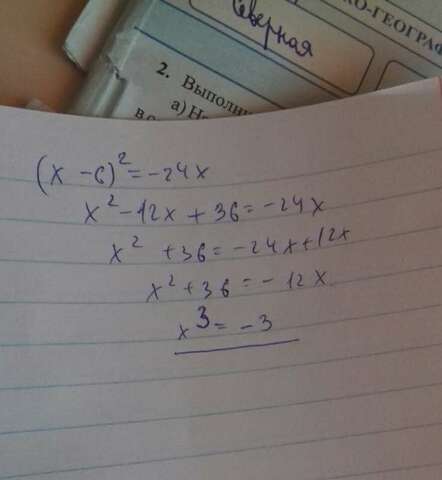 Северная
КО-ГЕОГРАФ
2. Выполни
а) Н
в
(x - 6)² = -24x
x² - 12x + 36 = -24x
x² + 36 = -24x + 12x
x² + 36 = - 12x
x³ = -3